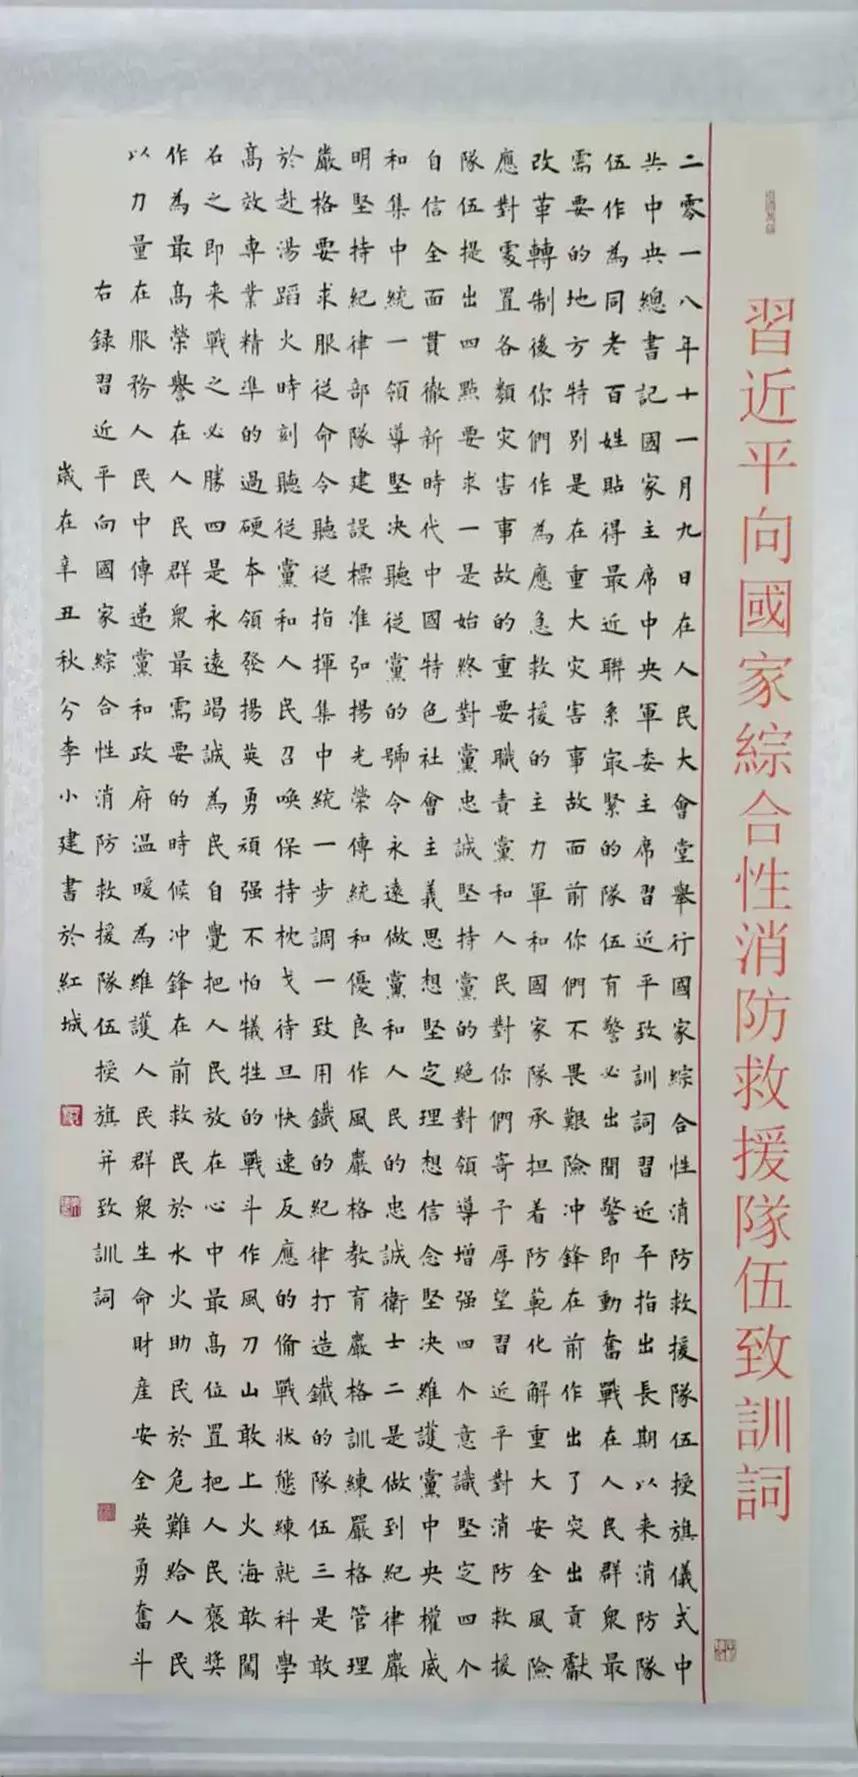 習近平向國家綜合性消防救援隊伍致訓詞
二零一八年十一月九日在人民大會堂舉行國家綜合性消防救援隊伍授旗儀式中
共中央總書記國家主席中央軍委主席習近平致訓詞習近平指出長期以来消防隊
伍作為同老百姓貼得最近聯系冣緊的隊伍有警必出聞警即動奮戰在人民群衆最
需要的地方特别是在重大灾害事故面前你們不畏艱險冲鋒在前作出了突出貢獻
改革轉制後你們作為應急救援的主力軍和國家隊承担着防範化解重大安全風險
應對處置各類灾害事故的重要職責黨和人民對你們寄予厚望習近平對消防救援
隊伍提出四點要求一是始終對黨忠誠堅持黨的絶對領導增强四个意識堅定四个
自信全面貫徹新時代中國特色社會主義思想堅定理想信念堅决維護黨中央權威
和集中統一領導堅决聽從黨的號令永遠做黨和人民的忠誠衛士二是做到紀律嚴
明堅持紀律部隊建設標准弘揚光榮傳統和優良作風嚴格教育嚴格訓練嚴格管理
嚴格要求服從命令聽從指揮集中統一步調一致用鐵的紀律打造鐵的隊伍三是敢
於赴湯蹈火時刻聽從黨和人民召唤保持枕戈待旦快速反應的備戰狀態練就科學
高效專業精準的過硬本領發揚英勇頑强不怕犧牲的戰斗作風刀山敢上火海敢闖
召之即来戰之必勝四是永遠竭誠為民自覺把人民放在心中最高位置把人民褒奖
作為最高榮譽在人民群衆最需要的時候冲鋒在前救民於水火助民於危難給人民
以力量在服務人民中傳递黨和政府温暖為維護人民群衆生命財産安全英勇奮斗
右録習近平向國家綜合性消防救援隊伍授旗并致訓詞
歲在辛丑秋分李小建書於紅城